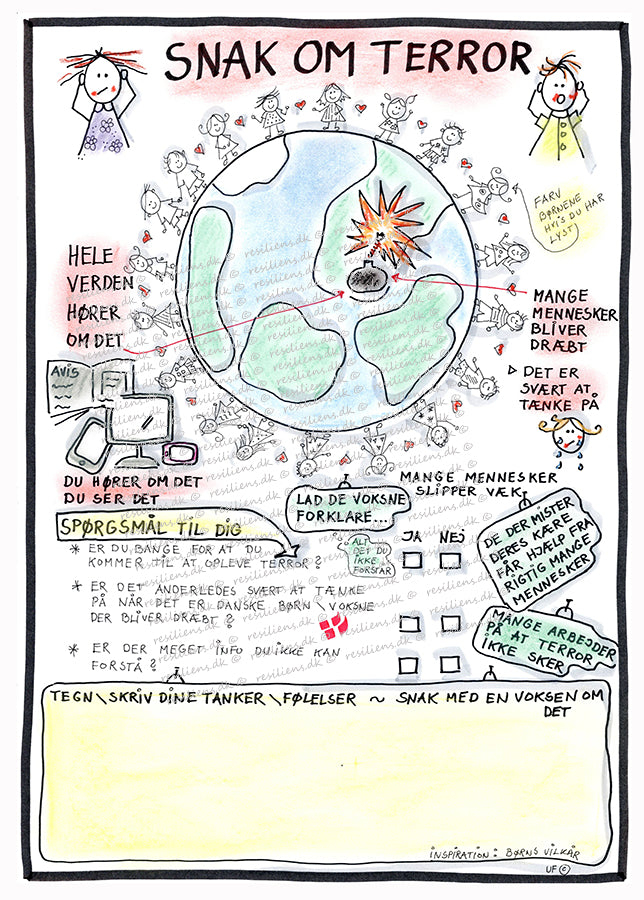 SNAK OM TERROR
FARV
BØRNENE
HVIS DU HAR
LYST
HELE
VERDEN
HØRER
OM DET
MANGE
MENNESKER
BLIVER
DRÆBT
DET ER
SVÆRT AT
TÆNKE PÅ
AVIS
DU HØRER OM DET
DU SER DET
MANGE MENNESKER
SLIPPER VÆK
LAD DE VOKSNE
FORKLARE...
SPØRGSMÅL TIL DIG
JA NEJ
ALT
DET DU
IKKE
FORSTÅR
* ER DU BANGE FOR AT DU
KOMMER TIL AT OPLEVE TERROR?
* ER DET ANDERLEDES SVÆRT AT TÆNKE
PÅ NÅR DET ER DANSKE BØRN\VOKSNE
DER BLIVER DRÆBT?
* ER DER MEGET INFO DU IKKE KAN
FORSTÅ?
DE DER MISTER
DERES KÆRE
FÅR HJÆLP FRA
RIGTIG MANGE
MENNESKER
MANGE ARBEJDER
PÅ AT TERROR
IKKE SKER
TEGN\SKRIV DINE TANKER\FØLELSER ~ SNAK MED EN VOKSEN OM
DET
INSPIRATION: BØRNS VILKÅR
UF ©
resiliens.dk ©